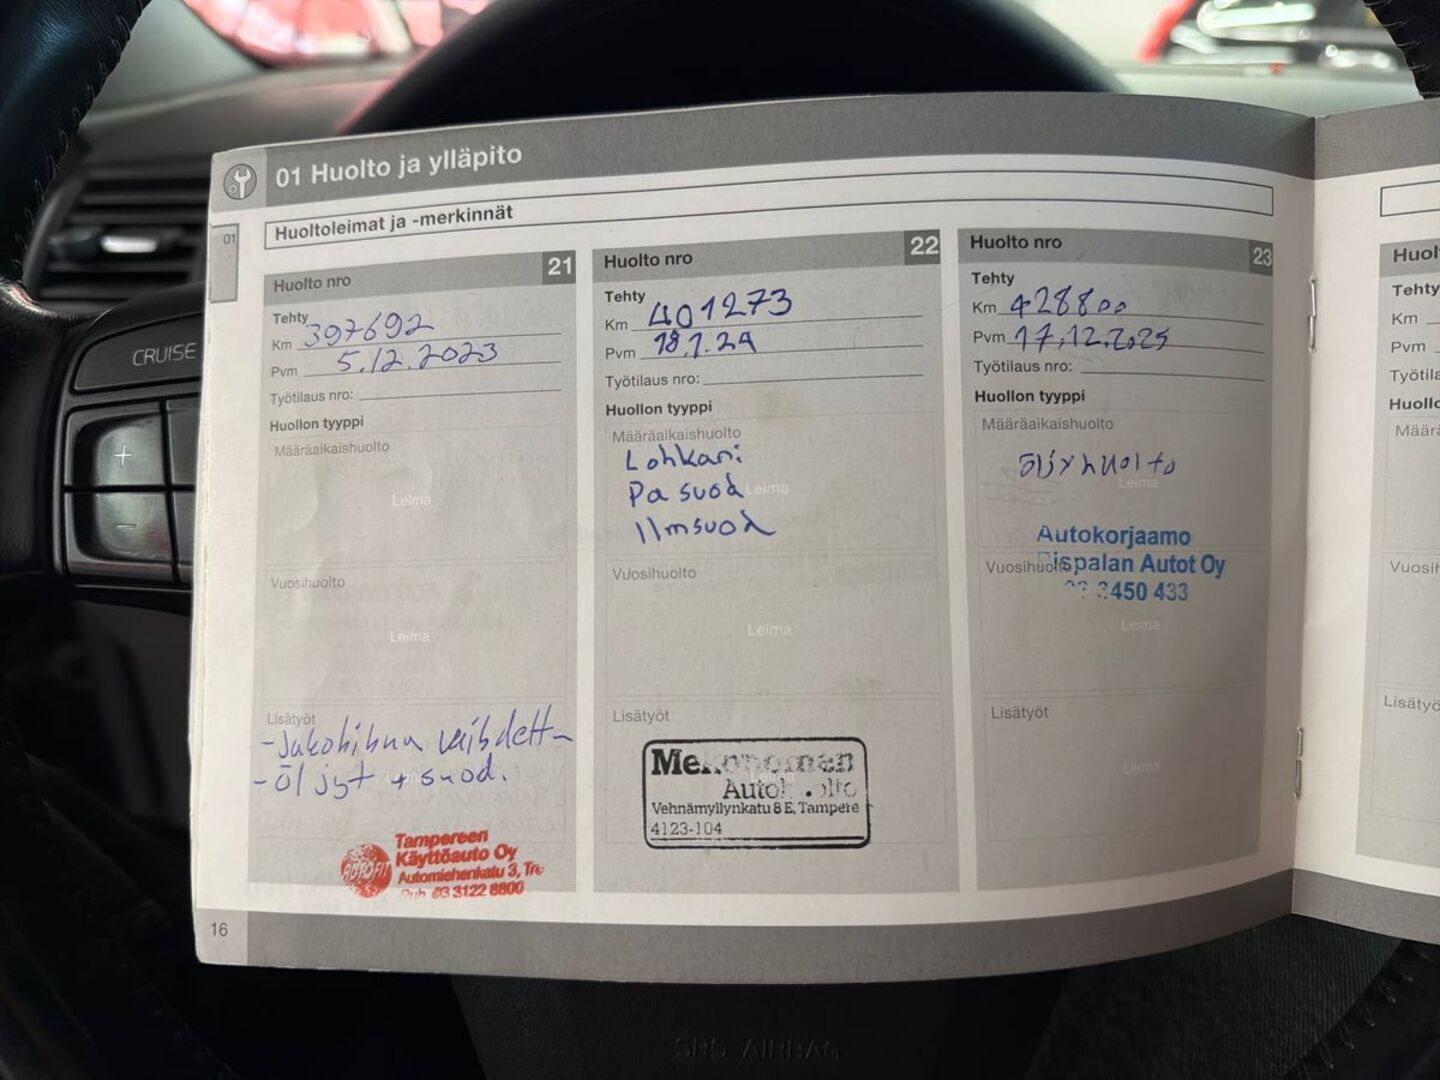 01 Huolto ja ylläpito
Huoltoleimat ja -merkinnät
01
Huolto nro 21
Tehty
Km 397692
Pvm 5.12.2023
Työtilaus nro:
Huollon tyyppi
Määräaikaishuolto
Leima
Vuosihuolto
Leima
Lisätyöt
-Jakohihna vaihdett
-öljyt + suod.
Tampereen
Käyttöauto Oy
AUTOFIT
Automiehenkatu 3, Tre
Puh. 03 3122 8800
Huolto nro 22
Tehty
Km 401273
Pvm 18.1.24
Työtilaus nro:
Huollon tyyppi
Määräaikaishuolto
Lohkari
Pa suod
Leima
Ilmsuod
Vuosihuolto
Leima
Lisätyöt
Mekonomen
Autohuolto
Vehnämyllynkatu 8 E, Tampere
4123-104
Huolto nro 23
Tehty
Km 428800
Pvm 17.12.2025
Työtilaus nro:
Huollon tyyppi
Määräaikaishuolto
öljyhuolto
Leima
Autokorjaamo
Vuosihuolto
Rispalan Autot Oy
450 433
Leima
Lisätyöt
Leima
16
Huol
Tehty
Km
Pvm
Työtila
Huollo
Määrä
Vuosih
Lisätyö
CRUISE
+
-
SRS AIRBAG